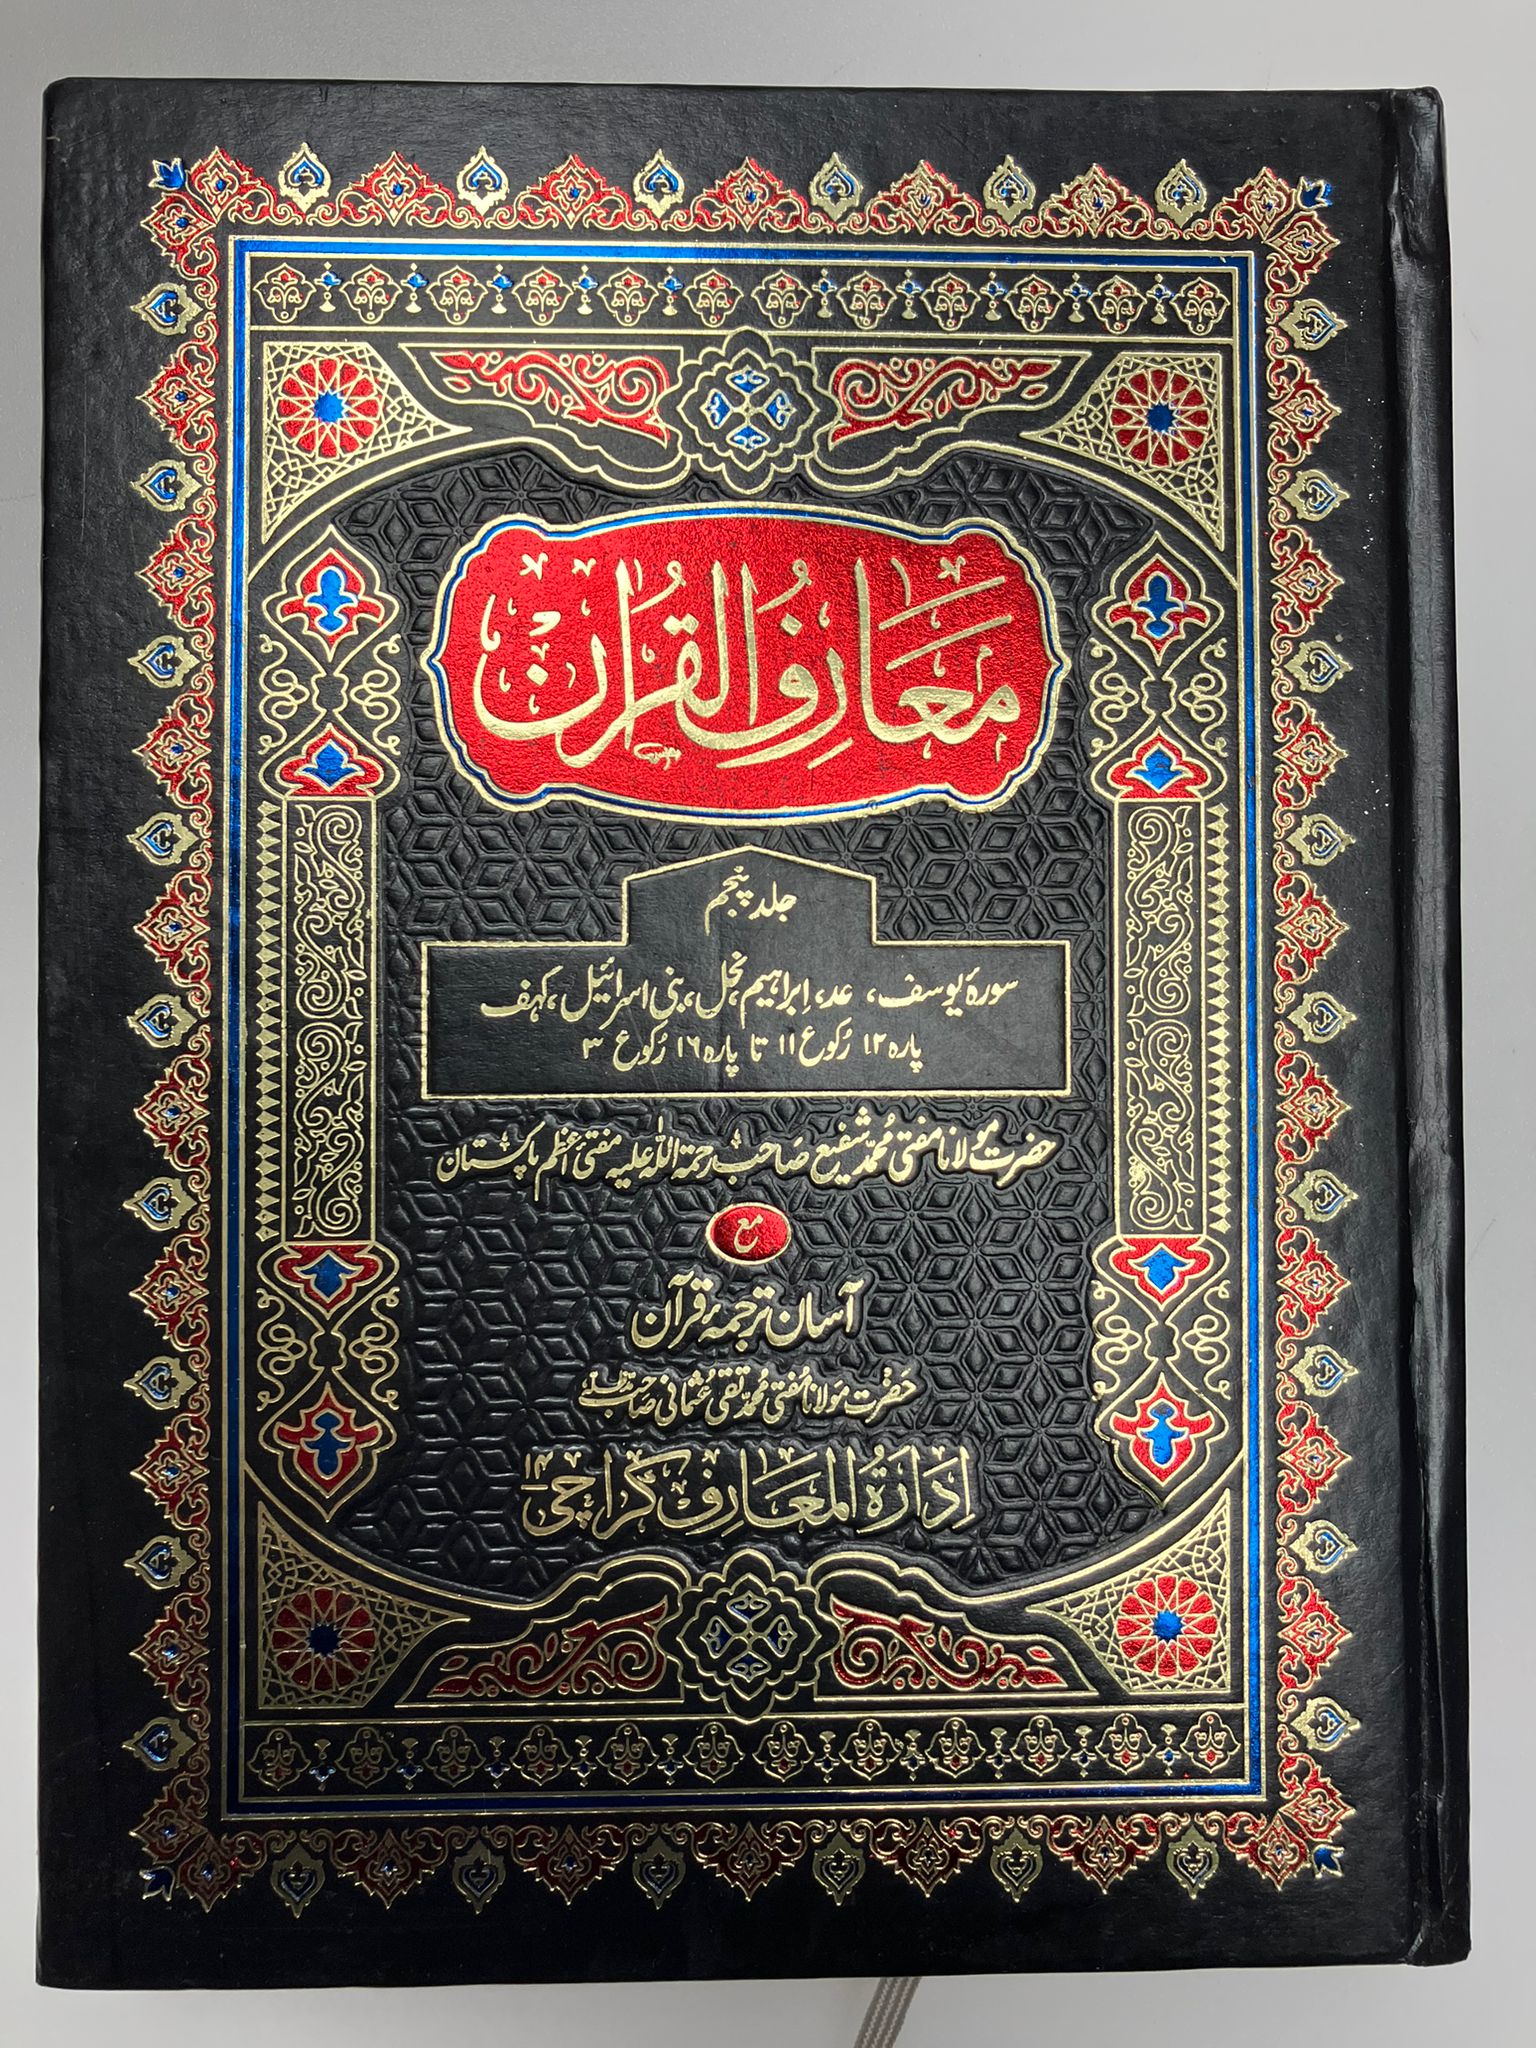 معارف القرآن
جلد پنجم
سورۂ یوسف، عد، ابراہیم، نحل، بنی اسرائیل، کہف
پارہ ۱۲ رکوع ۱۱ تا پارہ ۱۶ رکوع ۳
حضرت مولانا مفتی محمد شفیع صاحب رحمۃ اللہ علیہ مفتئ اعظم پاکستان
مع
آسان ترجمۂ قرآن
حضرت مولانا مفتی محمد تقی عثمانی صاحب
ادارۃ المعارف کراچی ۱۴